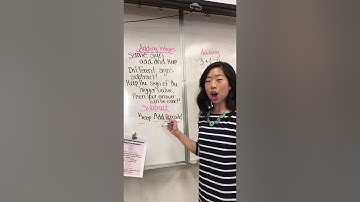 Adding Integers
Same sign
add and keep
Different signs
subtract!
Keep the sign of the
bigger value,
Then your answer
will be exact!
Subtract
Keep Add Opposite!
Adding